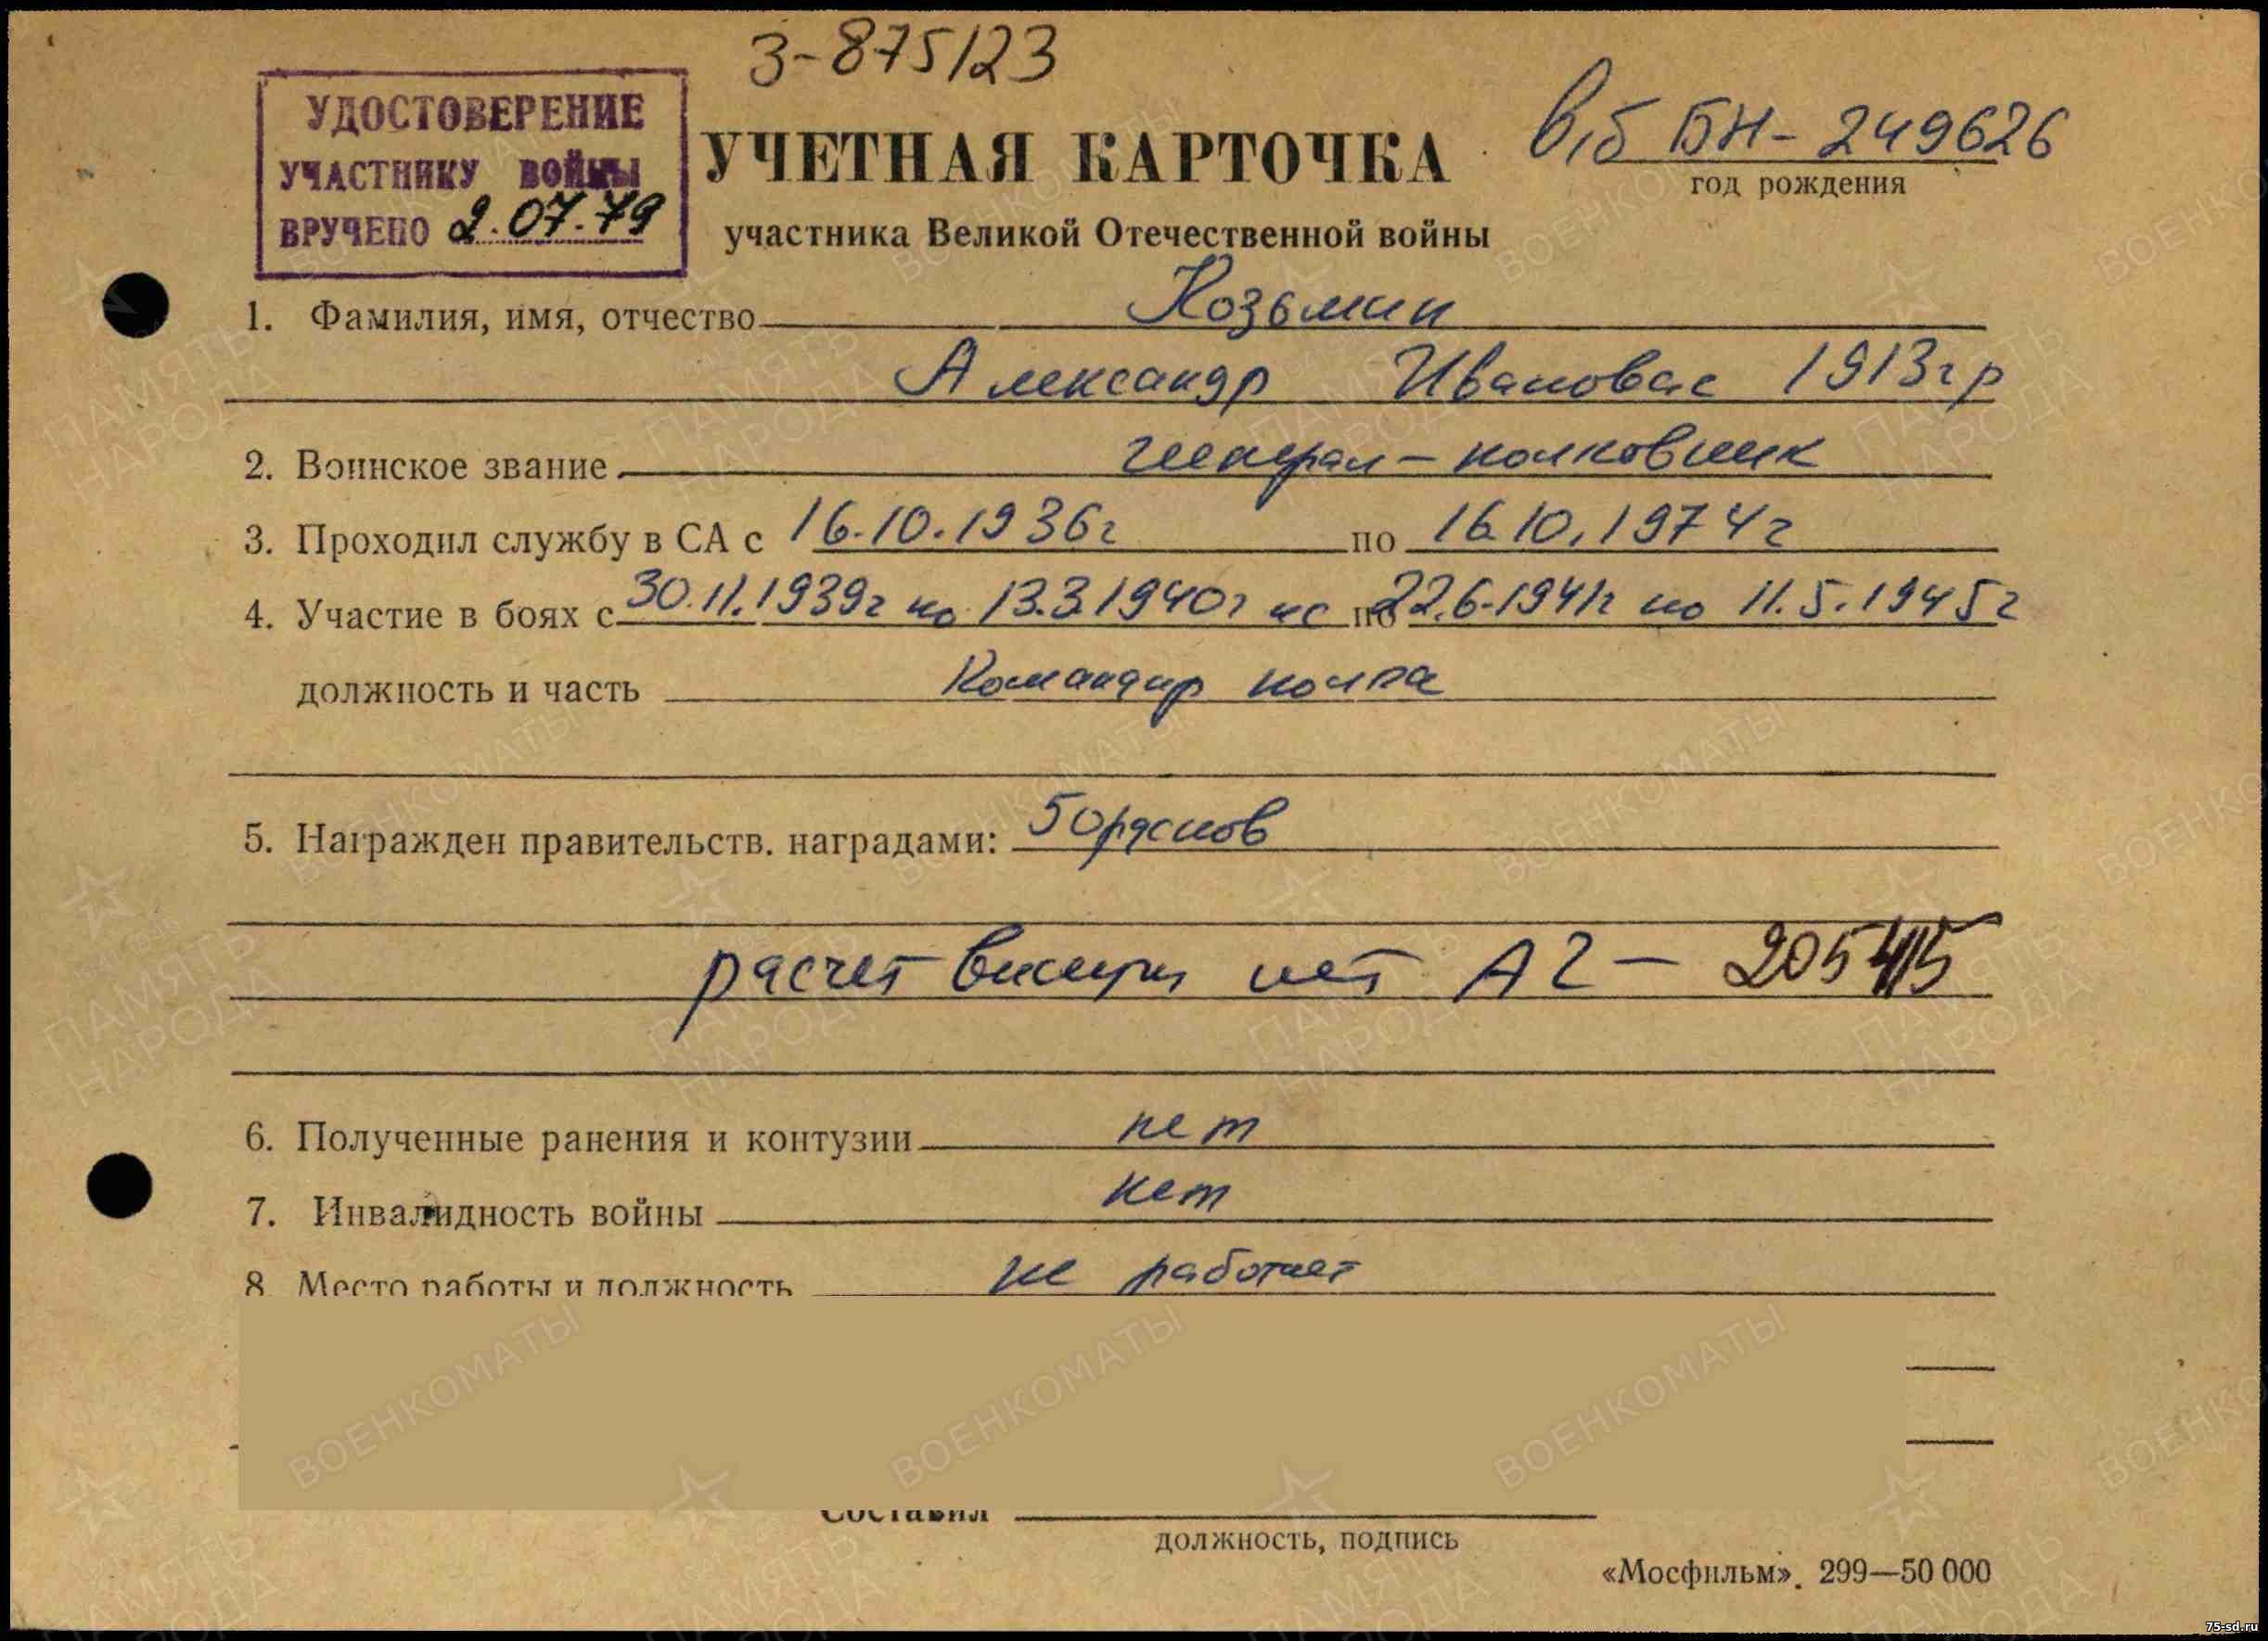 З-875123
УДОСТОВЕРЕНИЕ
УЧАСТНИКУ ВОЙНЫ
ВРУЧЕНО 2.07.79
УЧЕТНАЯ КАРТОЧКА
участника Великой Отечественной войны
в/б БН-249626
год рождения
1. Фамилия, имя, отчество Козьмин
Александр Иванович 1913 г р
2. Воинское звание генерал-полковник
3. Проходил службу в СА с 16.10.1936г по 16.10.1974г
4. Участие в боях с 30.11.1939г по 13.3.1940г и с по 22.6.1941г по 11.5.1945г
должность и часть Командир полка
5. Награжден правительств. наградами: 5 орденов
расчет нет АГ-
6. Полученные ранения и контузии нет
7. Инвалидность войны нет
8 Место работы и должность не работает
Составил
должность, подпись
«Мосфильм». 299—50 000
ПАМЯТЬ НАРОДА
ВОЕНКОМАТЫ
75-sd.ru